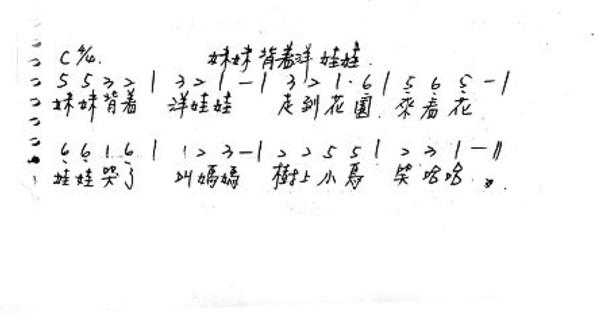 C 4/4. 妹妹背着洋娃娃
5 5 3 2 | 3 2 1 - | 3 2 1 · 6 | 5 6 5 - |
妹妹背着 洋娃娃 走到花園 來看花
6 6 1 6 | 1 2 3 - | 2 2 5 5 | 2 3 1 - ||
娃娃哭了 叫媽媽 樹上小鳥 笑哈哈.